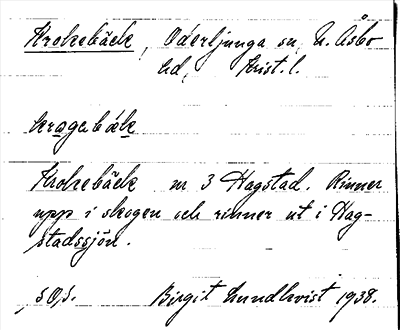 Krokebäck, Oderljunga sn, N. Åsbo
hd, Krist. l.
krogabäk
Krokebäck nr 3 Hagstad. Rinner
upp i skogen och rinner ut i Hag-
stadssjön.
Birgit Lundkvist 1938.